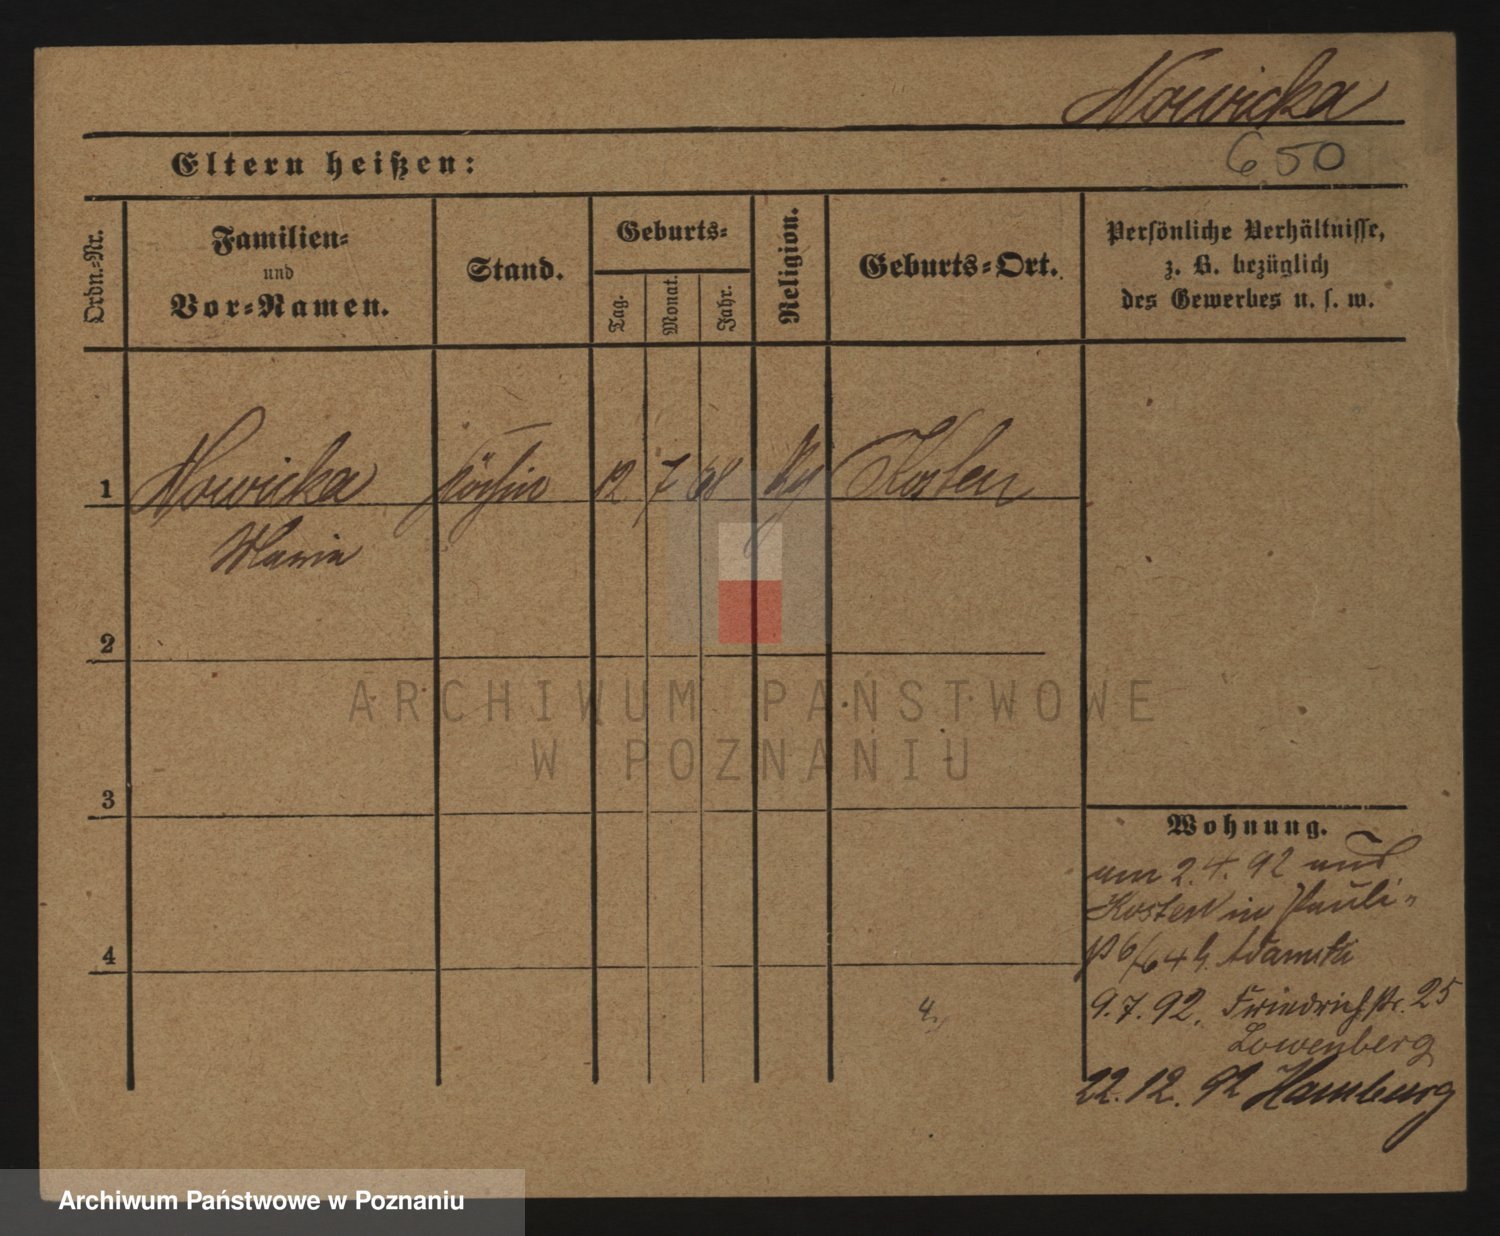 Nowicka
650
Eltern heißen:
Ordn.-Nr.
Familien-
und
Vor-Namen.
Stand.
Geburts-
Tag.
Monat.
Jahr.
Religion.
Geburts-Ort.
Persönliche Verhältnisse,
z. B. bezüglich
des Gewerbes u. s. w.
1 Nowicka Köchin 12 7 68 Kosten
Maria
2
3
4
Wohnung.
am 2.4.92 aus
Kosten in Pauli-
9.7.92. Friedrichstr. 25
Lowenberg
22.12.92 Hamburg
4.
ARCHIWUM PAŃSTWOWE
W POZNANIU
Archiwum Państwowe w Poznaniu